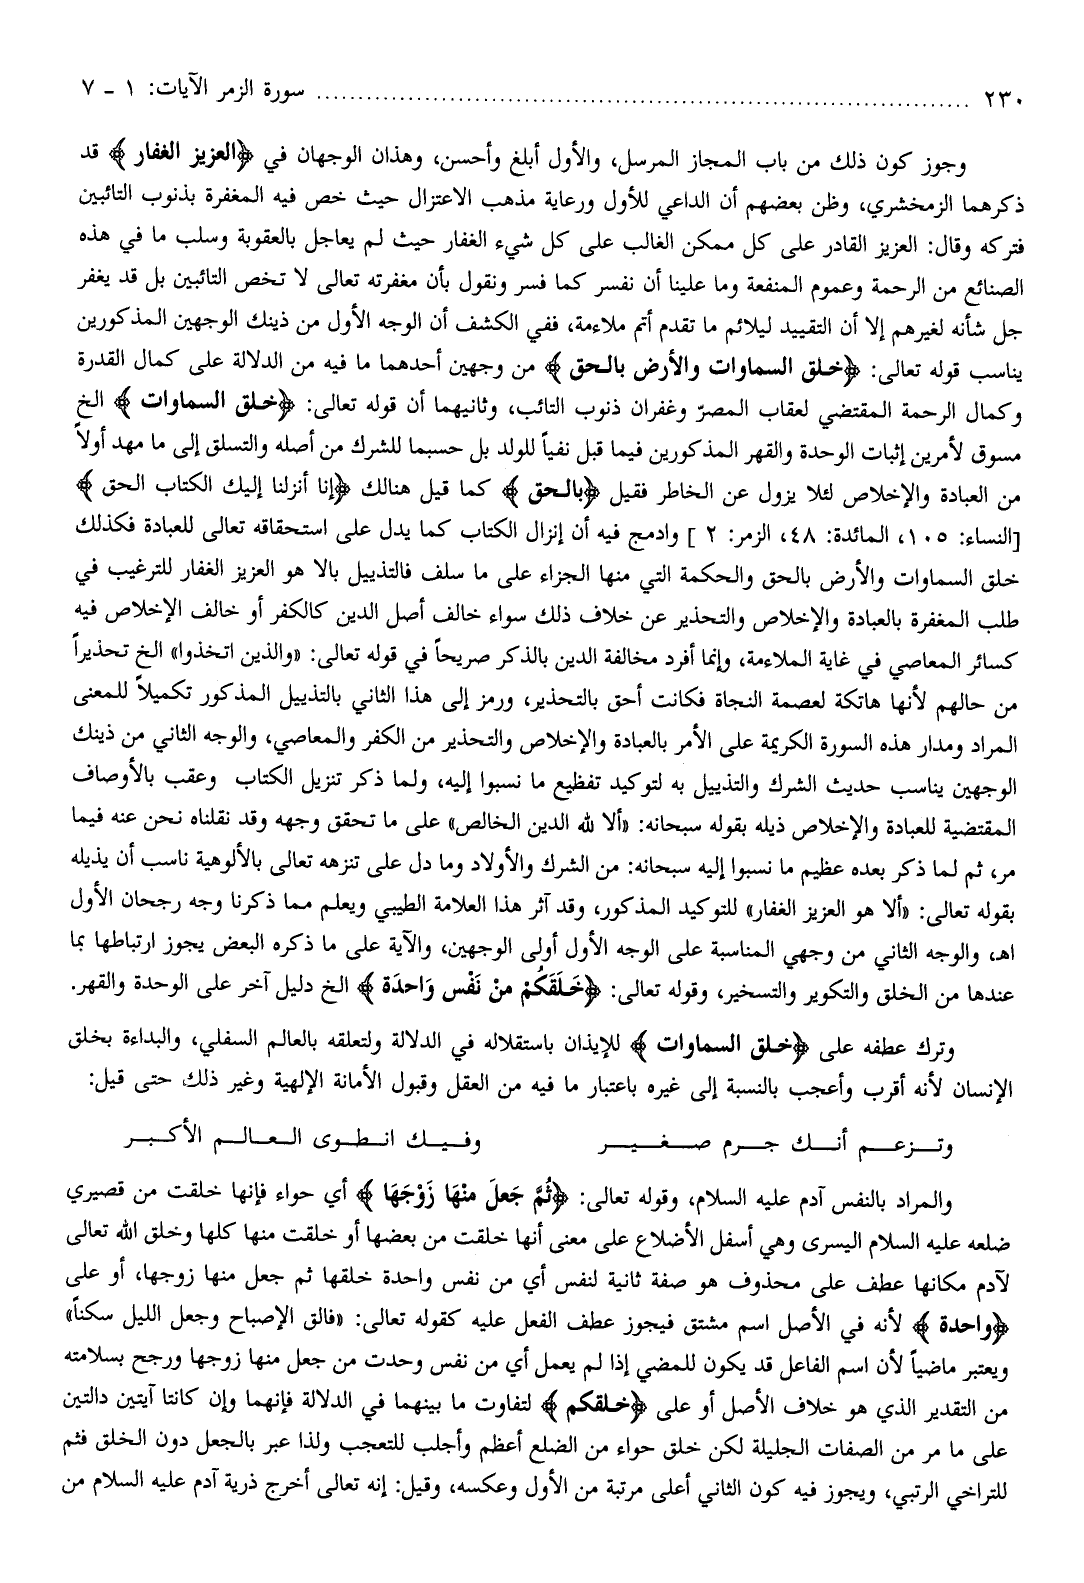 ٢٣٠ ........................................................................ سورة الزمر الآيات: ١ ـ ٧
وجوز كون ذلك من باب المجاز المرسل، والأول أبلغ وأحسن، وهذان الوجهان في ﴿العزيز الغفار﴾ قد
ذكرهما الزمخشري، وظن بعضهم أن الداعي للأول ورعاية مذهب الاعتزال حيث خص فيه المغفرة بذنوب التائبين
فتركه وقال: العزيز القادر على كل ممكن الغالب على كل شيء الغفار حيث لم يعاجل بالعقوبة وسلب ما في هذه
الصنائع من الرحمة وعموم المنفعة وما علينا أن نفسر كما فسر ونقول بأن مغفرته تعالى لا تخص التائبين بل قد يغفر
جل شأنه لغيرهم إلا أن التقييد ليلائم ما تقدم أتم ملاءمة، ففي الكشف أن الوجه الأول من ذينك الوجهين المذكورين
يناسب قوله تعالى: ﴿خلق السماوات والأرض بالحق﴾ من وجهين أحدهما ما فيه من الدلالة على كمال القدرة
وكمال الرحمة المقتضي لعقاب المصرّ وغفران ذنوب التائب، وثانيهما أن قوله تعالى: ﴿خلق السماوات﴾ الخ
مسوق لأمرين إثبات الوحدة والقهر المذكورين فيما قبل نفياً للولد بل حسبما للشرك من أصله والتسلق إلى ما مهد أولاً
من العبادة والإخلاص لئلا يزول عن الخاطر فقيل ﴿بالحق﴾ كما قيل هنالك ﴿إنا أنزلنا إليك الكتاب الحق﴾
[النساء: ١٠٥، المائدة: ٤٨، الزمر: ٢ ] وادمج فيه أن إنزال الكتاب كما يدل على استحقاقه تعالى للعبادة فكذلك
خلق السماوات والأرض بالحق والحكمة التي منها الجزاء على ما سلف فالتذييل بالا هو العزيز الغفار للترغيب في
طلب المغفرة بالعبادة والإخلاص والتحذير عن خلاف ذلك سواء خالف أصل الدين كالكفر أو خالف الإخلاص فيه
كسائر المعاصي في غاية الملاءمة، وإنما أفرد مخالفة الدين بالذكر صريحاً في قوله تعالى: «والذين اتخذوا» الخ تحذيراً
من حالهم لأنها هاتكة لعصمة النجاة فكانت أحق بالتحذير، ورمز إلى هذا الثاني بالتذييل المذكور تكميلاً للمعنى
المراد ومدار هذه السورة الكريمة على الأمر بالعبادة والإخلاص والتحذير من الكفر والمعاصي، والوجه الثاني من ذينك
الوجهين يناسب حديث الشرك والتذييل به لتوكيد تفظيع ما نسبوا إليه، ولما ذكر تنزيل الكتاب وعقب بالأوصاف
المقتضية للعبادة والإخلاص ذيله بقوله سبحانه: «ألا لله الدين الخالص» على ما تحقق وجهه وقد نقلناه نحن عنه فيما
مر، ثم لما ذكر بعده عظيم ما نسبوا إليه سبحانه: من الشرك والأولاد وما دل على تنزهه تعالى بالألوهية ناسب أن يذيله
بقوله تعالى: «ألا هو العزيز الغفار» للتوكيد المذكور، وقد آثر هذا العلامة الطيبي ويعلم مما ذكرنا وجه رجحان الأول
اهـ، والوجه الثاني من وجهي المناسبة على الوجه الأول أولى الوجهين، والآية على ما ذكره البعض يجوز ارتباطها بما
عندها من الخلق والتكوير والتسخير، وقوله تعالى: ﴿خَلَقَكُمْ منْ نَفْس وَاحدَة﴾ الخ دليل آخر على الوحدة والقهر.
وترك عطفه على ﴿خلق السماوات﴾ للإيذان باستقلاله في الدلالة ولتعلقه بالعالم السفلي، والبداءة بخلق
الإنسان لأنه أقرب وأعجب بالنسبة إلى غيره باعتبار ما فيه من العقل وقبول الأمانة الإلهية وغير ذلك حتى قيل:
وتزعم أنك جرم صغير    وفيك انطوى العالم الأكبر
والمراد بالنفس آدم عليه السلام، وقوله تعالى: ﴿ثُمَّ جَعلَ منْهَا زَوْجَهَا﴾ أي حواء فإنها خلقت من قصيري
ضلعه عليه السلام اليسرى وهي أسفل الأضلاع على معنى أنها خلقت من بعضها أو خلقت منها كلها وخلق الله تعالى
لآدم مكانها عطف على محذوف هو صفة ثانية لنفس أي من نفس واحدة خلقها ثم جعل منها زوجها، أو على
﴿واحدة﴾ لأنه في الأصل اسم مشتق فيجوز عطف الفعل عليه كقوله تعالى: «فالق الإصباح وجعل الليل سكناً»
ويعتبر ماضياً لأن اسم الفاعل قد يكون للمضي إذا لم يعمل أي من نفس وحدت من جعل منها زوجها ورجح بسلامته
من التقدير الذي هو خلاف الأصل أو على ﴿خلقكم﴾ لتفاوت ما بينهما في الدلالة فإنهما وإن كانتا آيتين دالتين
على ما مر من الصفات الجليلة لكن خلق حواء من الضلع أعظم وأجلب للتعجب ولذا عبر بالجعل دون الخلق فثم
للتراخي الرتبي، ويجوز فيه كون الثاني أعلى مرتبة من الأول وعكسه، وقيل: إنه تعالى أخرج ذرية آدم عليه السلام من